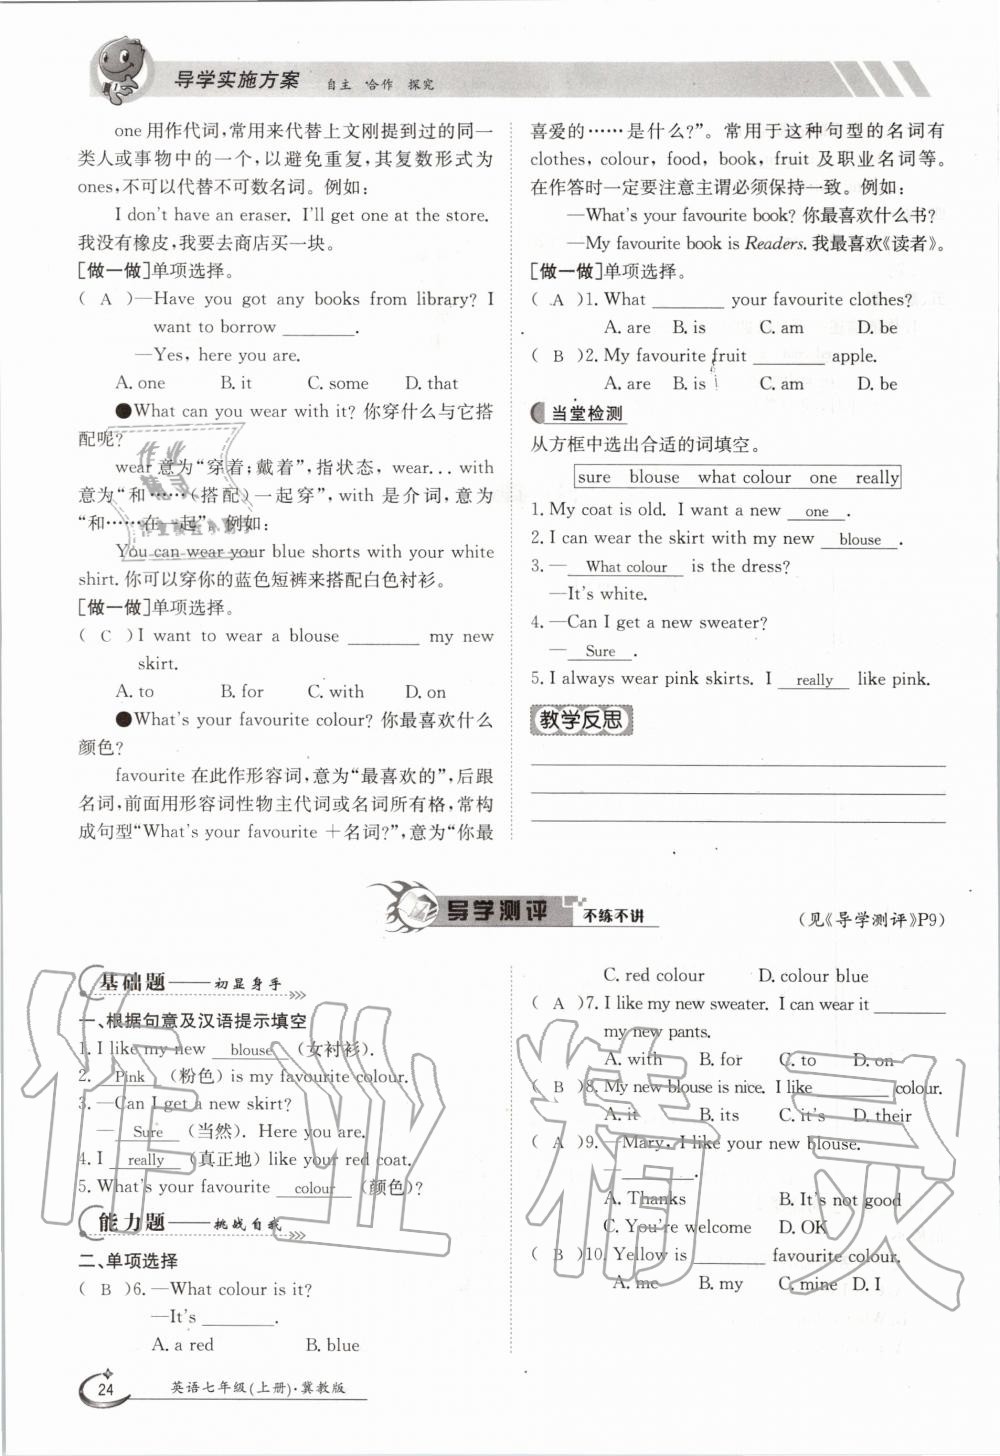 导学实施方案 自主 合作 探究
one 用作代词，常用来代替上文刚提到过的同一
类人或事物中的一个，以避免重复，其复数形式为
ones，不可以代替不可数名词。例如：
I don't have an eraser. I'll get one at the store.
我没有橡皮，我要去商店买一块。
[做一做]单项选择。
( A )—Have you got any books from library? I
want to borrow ________.
—Yes, here you are.
A. one B. it C. some D. that
●What can you wear with it? 你穿什么与它搭
配呢？
wear 意为“穿着；戴着”，指状态，wear... with
意为“和……(搭配)一起穿”，with 是介词，意为
“和……在一起”。例如：
You can wear your blue shorts with your white
shirt. 你可以穿你的蓝色短裤来搭配白色衬衫。
[做一做]单项选择。
( C )I want to wear a blouse ________ my new
skirt.
A. to B. for C. with D. on
●What's your favourite colour? 你最喜欢什么
颜色？
favourite 在此作形容词，意为“最喜欢的”，后跟
名词，前面用形容词性物主代词或名词所有格，常构
成句型“What's your favourite ＋名词?”，意为“你最
喜爱的……是什么?”。常用于这种句型的名词有
clothes, colour, food, book, fruit 及职业名词等。
在作答时一定要注意主谓必须保持一致。例如：
—What's your favourite book? 你最喜欢什么书？
—My favourite book is Readers. 我最喜欢《读者》。
[做一做]单项选择。
( A )1. What ________ your favourite clothes?
A. are B. is C. am D. be
( B )2. My favourite fruit ________ apple.
A. are B. is C. am D. be
当堂检测
从方框中选出合适的词填空。
sure blouse what colour one really
1. My coat is old. I want a new one .
2. I can wear the skirt with my new blouse .
3. — What colour is the dress?
—It's white.
4. —Can I get a new sweater?
— Sure .
5. I always wear pink skirts. I really like pink.
教学反思
导学测评 不练不讲 (见《导学测评》P9)
基础题——初显身手
一、根据句意及汉语提示填空
1. I like my new blouse (女衬衫).
2. Pink (粉色) is my favourite colour.
3. —Can I get a new skirt?
— Sure (当然). Here you are.
4. I really (真正地) like your red coat.
5. What's your favourite colour (颜色)?
能力题——挑战自我
二、单项选择
( B )6. —What colour is it?
—It's ________.
A. a red B. blue
C. red colour D. colour blue
( A )7. I like my new sweater. I can wear it ________
my new pants.
A. with B. for C. to D. on
( B )8. My new blouse is nice. I like ________ colour.
A. it B. its C. it's D. their
( A )9. —Mary, I like your new blouse.
—________.
A. Thanks B. It's not good
C. You're welcome D. OK
( B )10. Yellow is ________ favourite colour.
A. me B. my C. mine D. I
24 英语七年级(上册)·冀教版
作业精灵